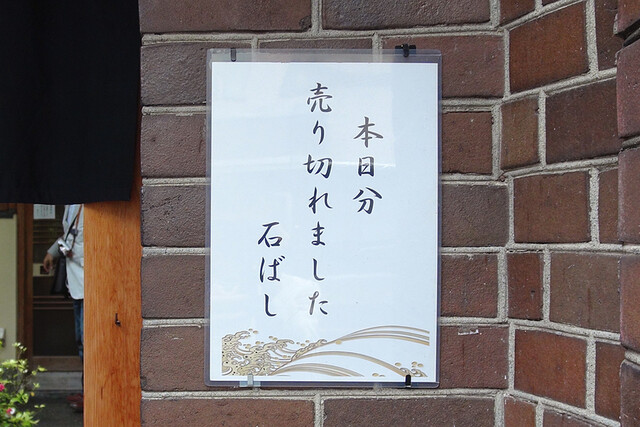 本日分
売り切れました
石ばし